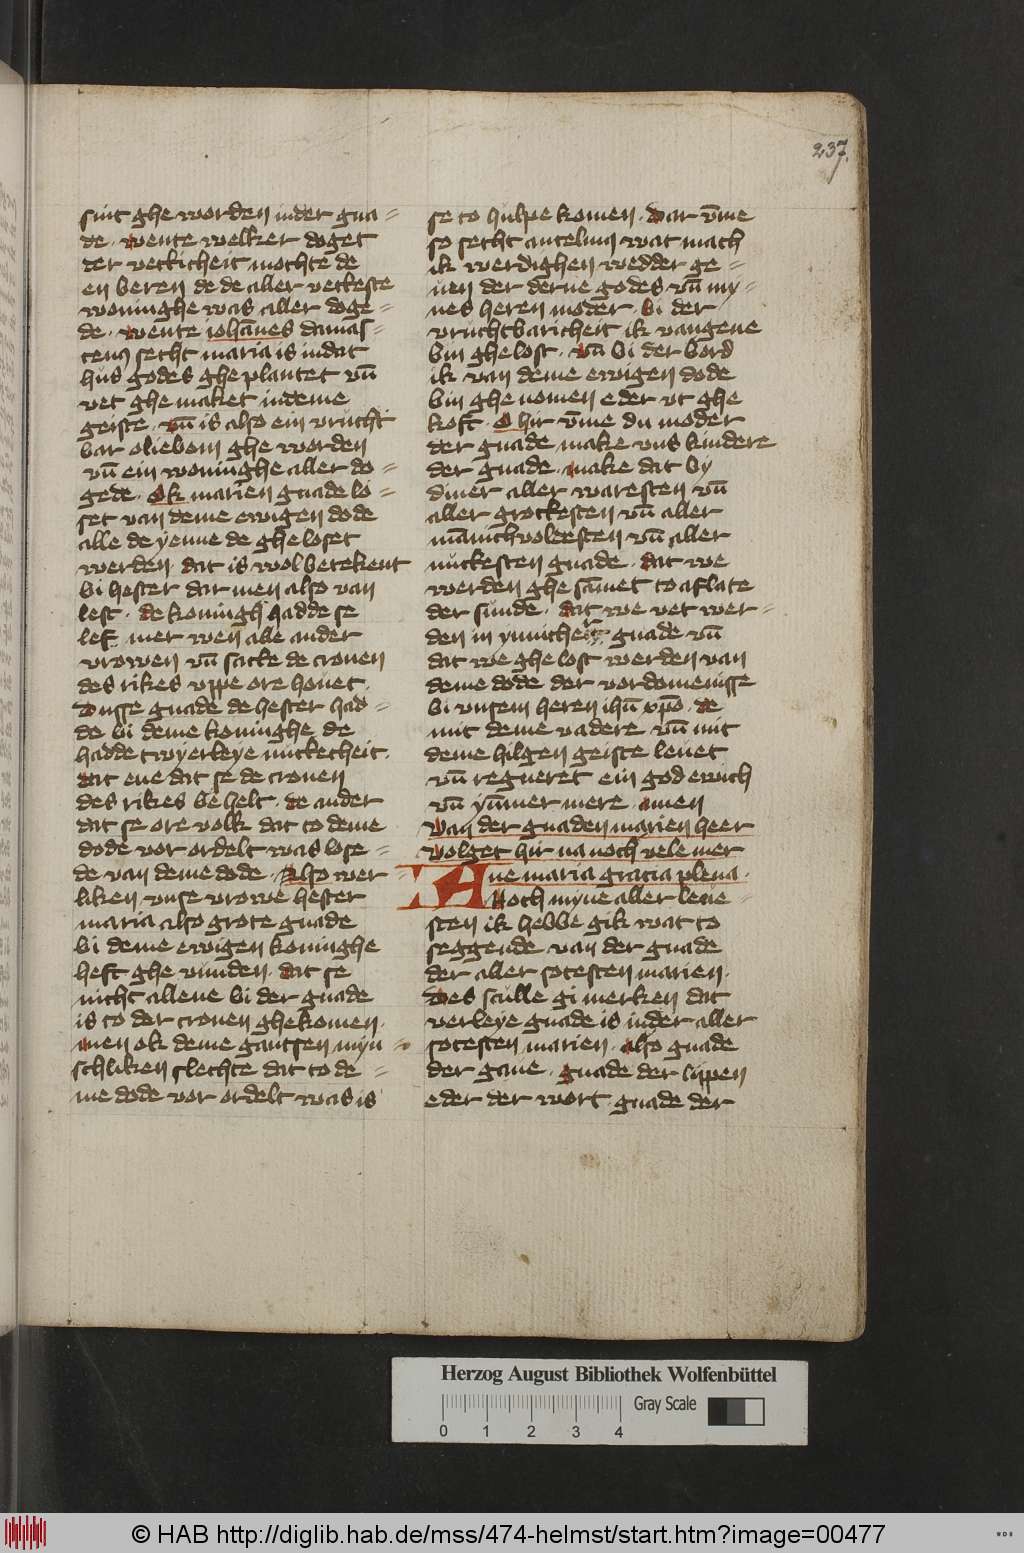 237.
sint ghe worden inder gna=
de. wente welker doget
der vetticheit mochte de
en beren de de aller vetteste
woninghe was aller doge=
de. wente iohānes damas=
cenꝰ secht maria is indat
hus godes ghe plantet vn̄
vet ghe maket indeme
geiste. vn̄ is also ein vrucht
bar oliebom ghe worden
vn̄ ein woninghe aller do=
gede. Ok marien gnade lo=
set van deme ewigen dode
alle de yenne de ghe loset
werden. dat is wol betekent
bi hester dar men also van
lest. de koningh hadde se
lef mer wen alle ander
vrowen vn̄ satte de cronen
des rikes vppe ore houet.
Dusse gnade de hester had=
de bi deme koninghe de
hadde twyerleye nutticheit.
dat ene dat se de cronen
des rikes be helt. de ander
dat se ore volk dat to deme
dode vor ordelt was lose=
de van deme dode. Also wer=
liken vnse vrowe hester
maria also grote gnade
bi deme ewigen koninghe
heft ghe vunden. dat se
nicht allene bi der gnade
is to der cronen ghekomen.
men ok deme gantsen myn=
schliken slechte dat to de=
me dode vor ordelt was is
se to hulpe komen. dar v̄me
so secht anselmꝰ wat mach
ik werdighen wedder ge=
uen der derne godes vn̄ my=
nes heren moder. bi der
vruchtbaricheit ik vangene
bin ghe lost. vn̄ bi der bord
ik van deme ewigen dode
bin ghe nomen eder vt ghe
koft. O hir v̄me du moder
der gnade make vns kindere
der gnade. make dat by
diner aller waresten vn̄
aller grottesten vn̄ aller
mānichvoldesten vn̄ aller
nuttesten gnade. dat we
werden ghe sāmet to aflate
der sunde. dat we vet wer=
den in ynnicheit gnade vn̄
dat we ghe lost werden van
deme dode der vordomenisse
bi vnsem heren ihū xp̄o. de
mit deme vadere vn̄ mit
deme hilgen geiste leuet
vn̄ regneret ein god ewich
vn̄ ȳmer mere. amen
Van der gnaden marien heer
volget hir na noch vele mer
Aue maria gracia plena.
Noch myne aller leue=
sten ik hebbe gik wat to
seggende van der gnade
der aller sotesten marien.
Des scůlle gi merken dat
verleye gnade is inder aller
sotesten marien. also gnade
der gaue. gnade der lippen
eder der wort. gnade der
Herzog August Bibliothek Wolfenbüttel
Gray Scale
0 1 2 3 4
© HAB http://diglib.hab.de/mss/474-helmst/start.htm?image=00477